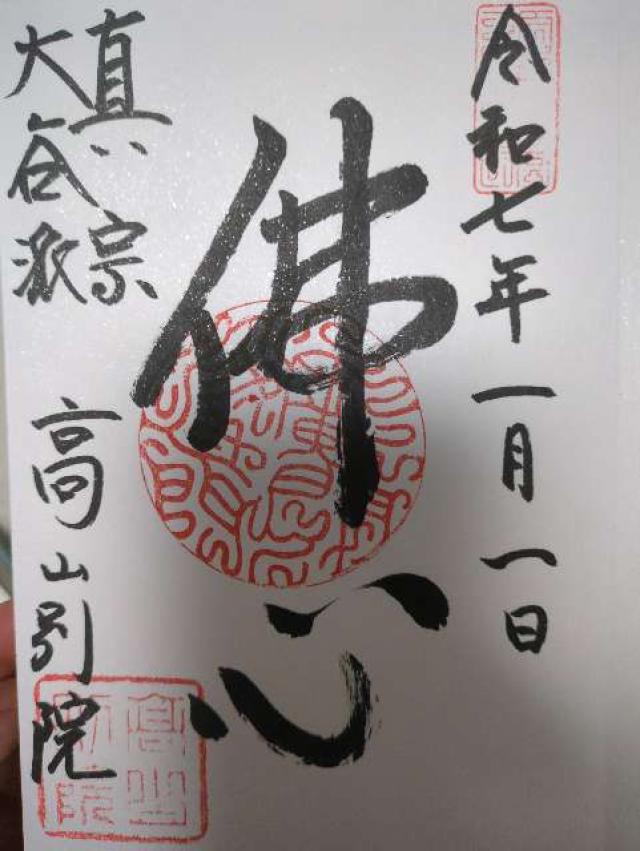 令和七年一月一日
佛心
真宗
大谷派
高山別院